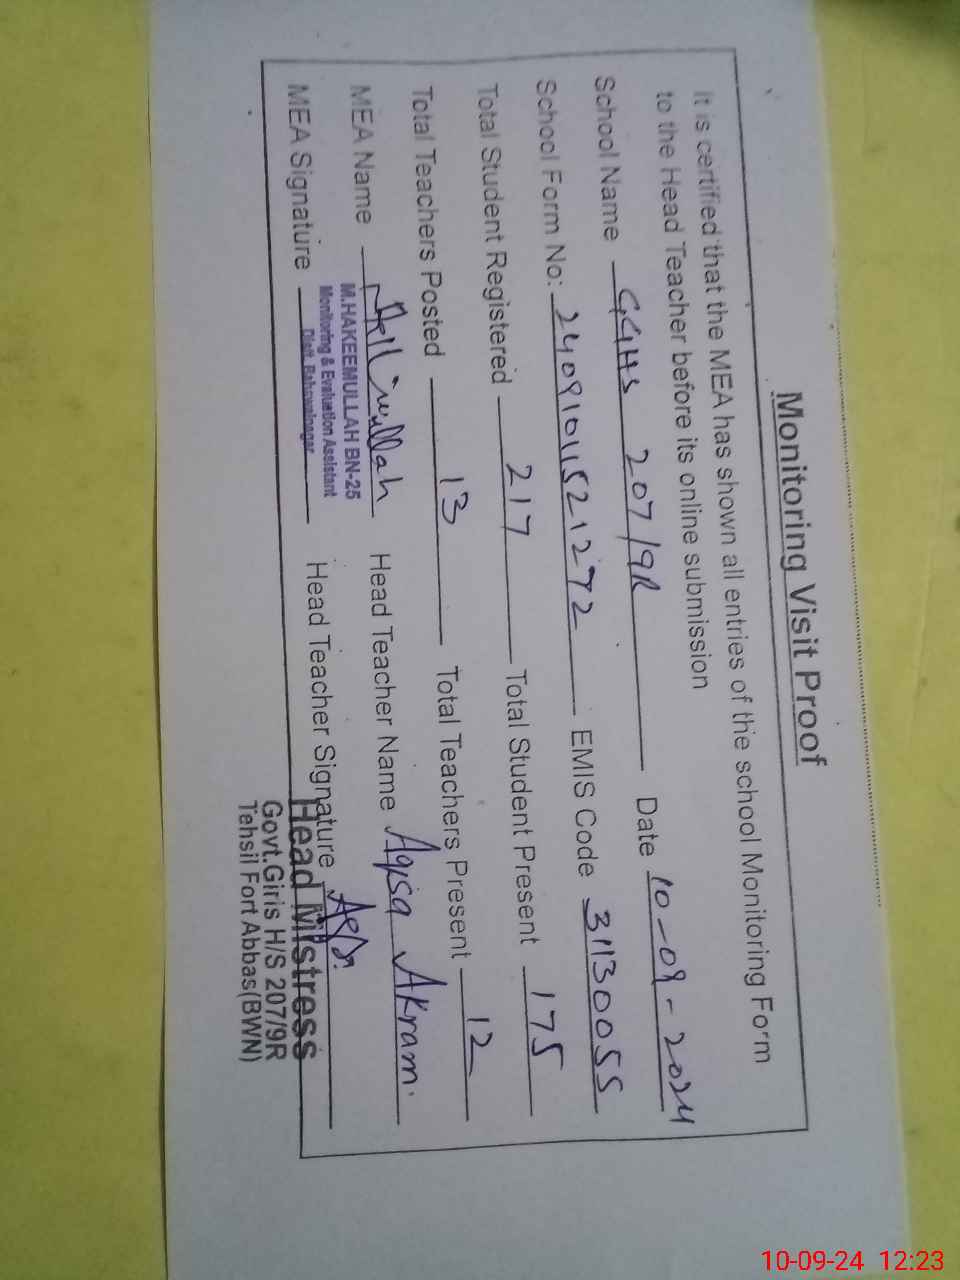 Monitoring Visit Proof
It is certified that the MEA has shown all entries of the school Monitoring Form
to the Head Teacher before its online submission
School Name GGHS 207/9R Date 10-09-2024
School Form No: 24091011521272 EMIS Code 31130055
Total Student Registered 217 Total Student Present 175
Total Teachers Posted 13 Total Teachers Present 12
MEA Name Head Teacher Name Aqisa Akram.
M.HAKEEMULLAH BN-25
Monitoring & Evaluation Assistant
Distt. Bahawalnagar
MEA Signature Head Teacher Signature
Head Mistress
Govt.Girls H/S 207/9R
Tehsil Fort Abbas(BWN)
10-09-24 12:23